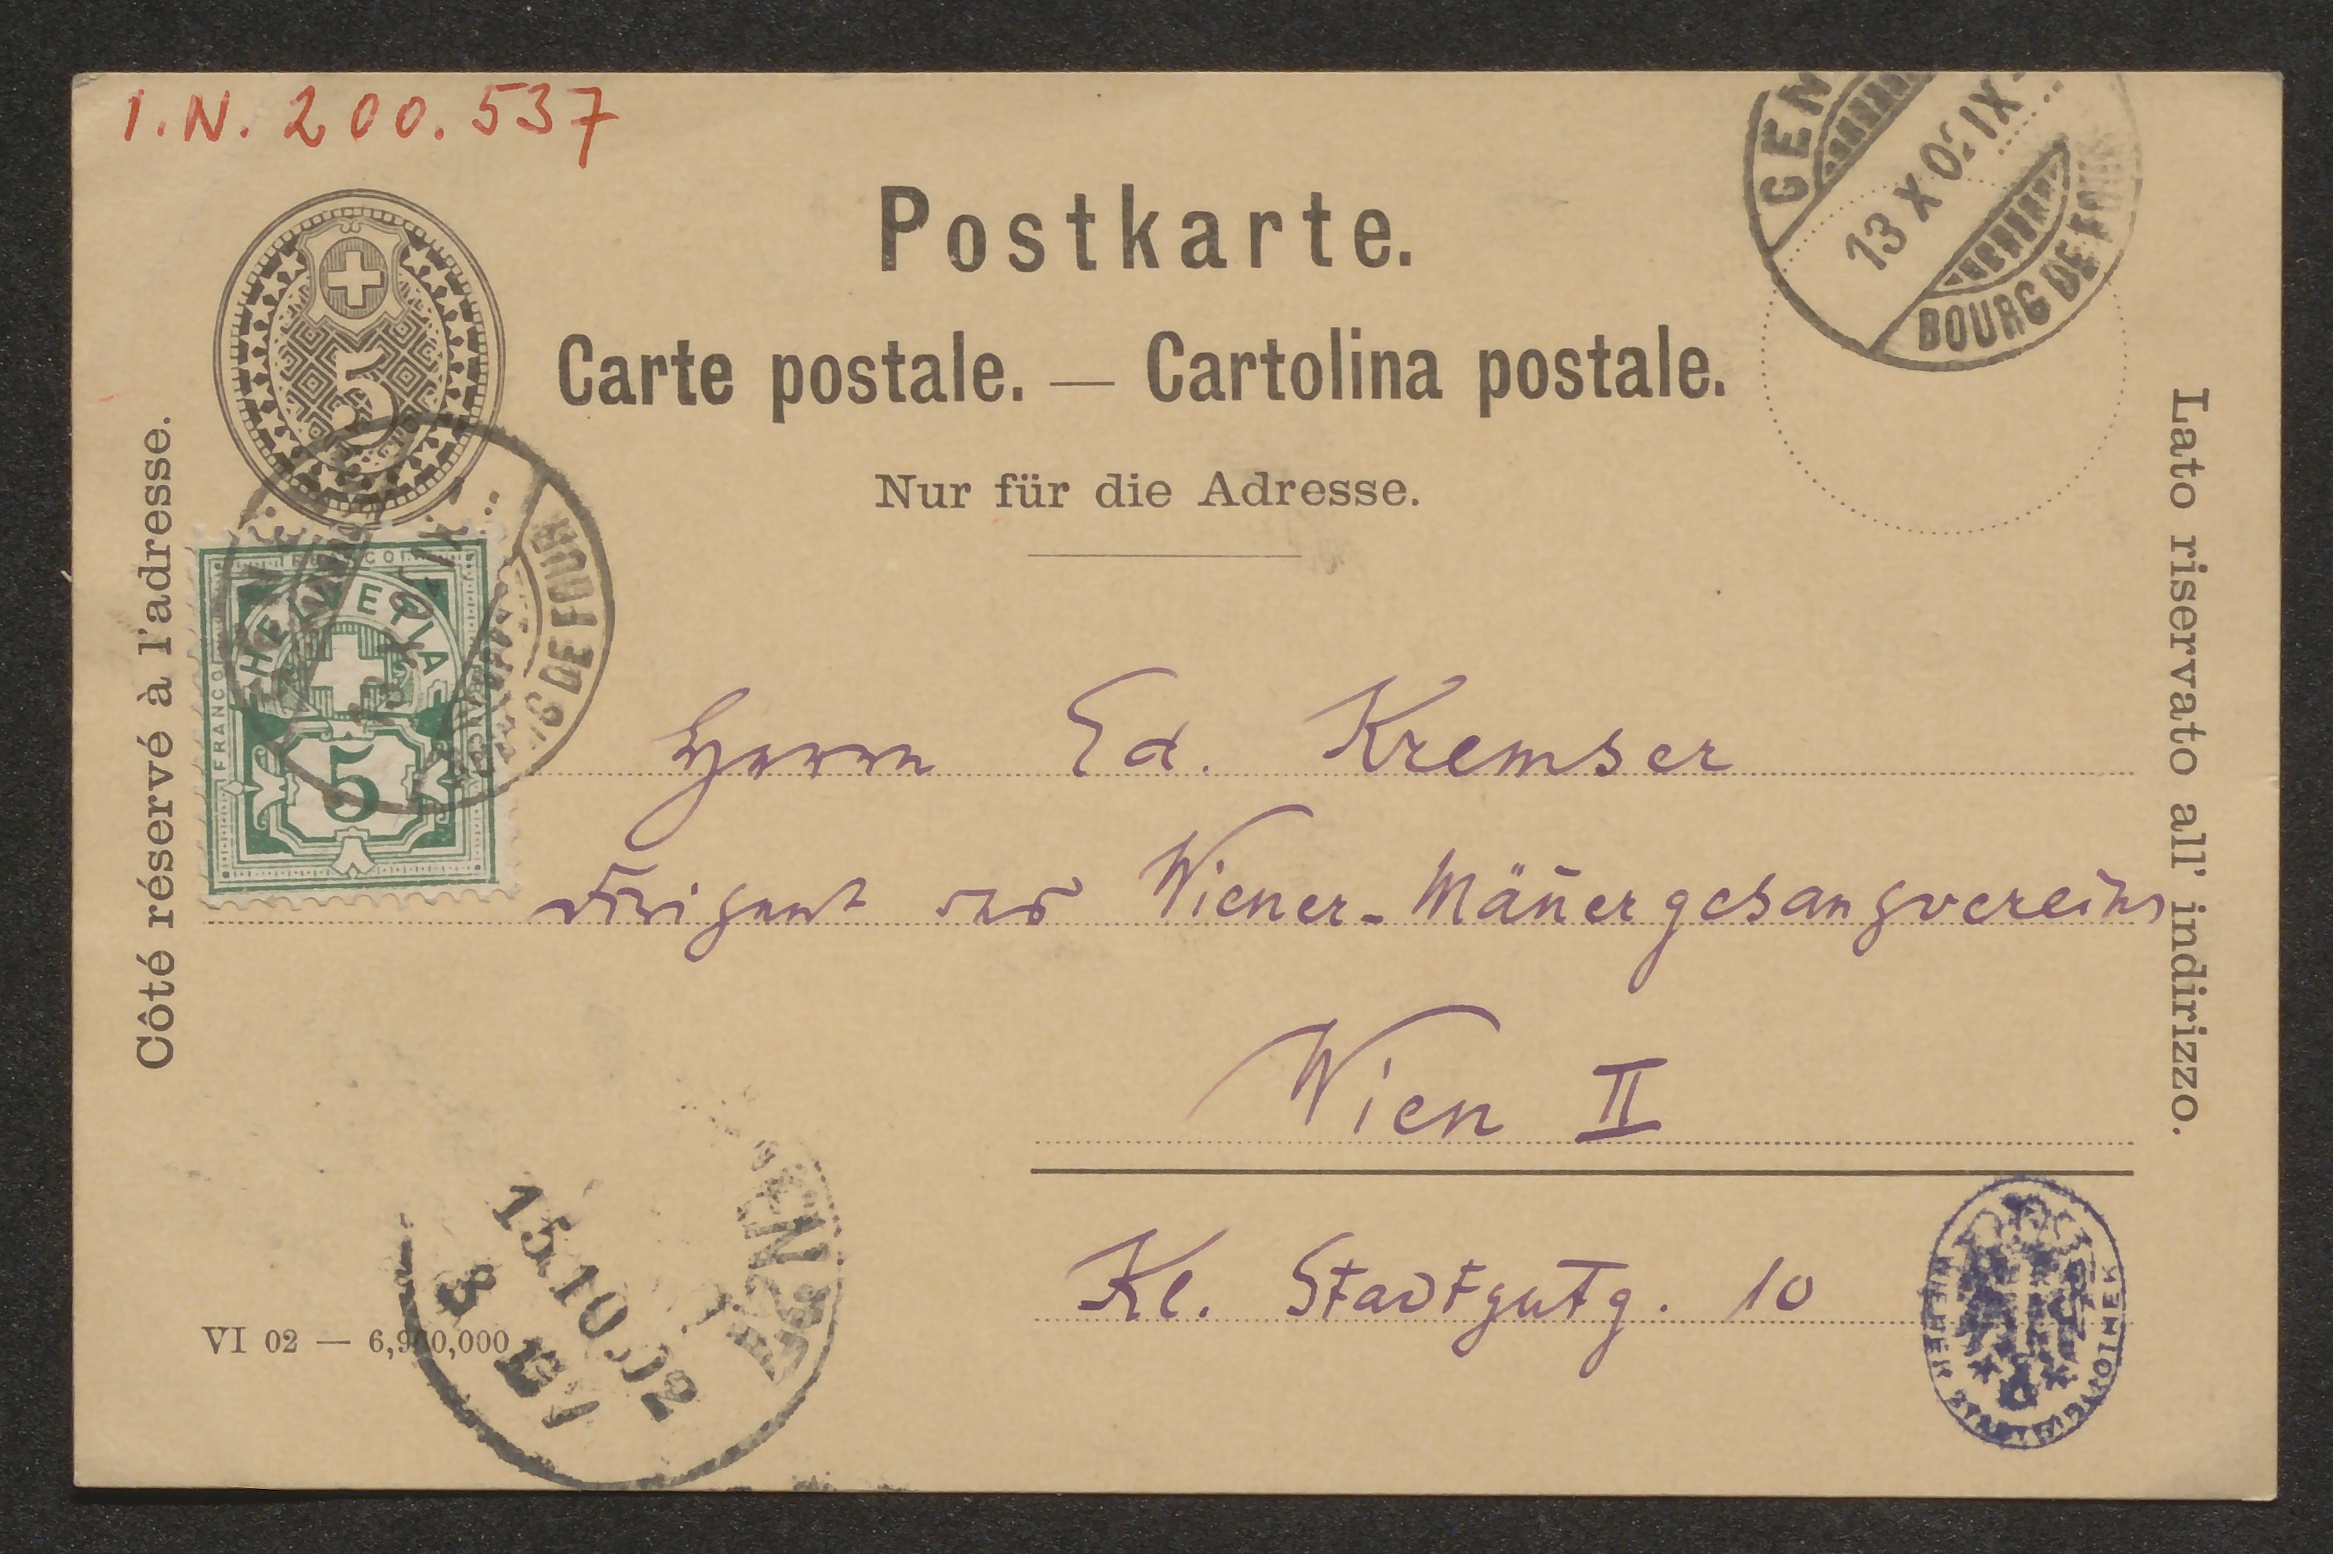 I.N. 200.537
Postkarte.
Carte postale. — Cartolina postale.
Nur für die Adresse.
Côté réservé à l'adresse.
Lato riservato all' indirizzo.
GEN
13 X 02 IX
BOURG DE FOUR
5
FRANCO
HELVETIA
FRANCO
5
13 X
DE FOUR
Herrn Ed. Kremser
Dirigent des Wiener-Män̄ergesangvereins
Wien II
Kl. Stadtgutg. 10
15.10.02
8
VI 02 — 6,900,000
WIENER STADTBIBLIOTHEK